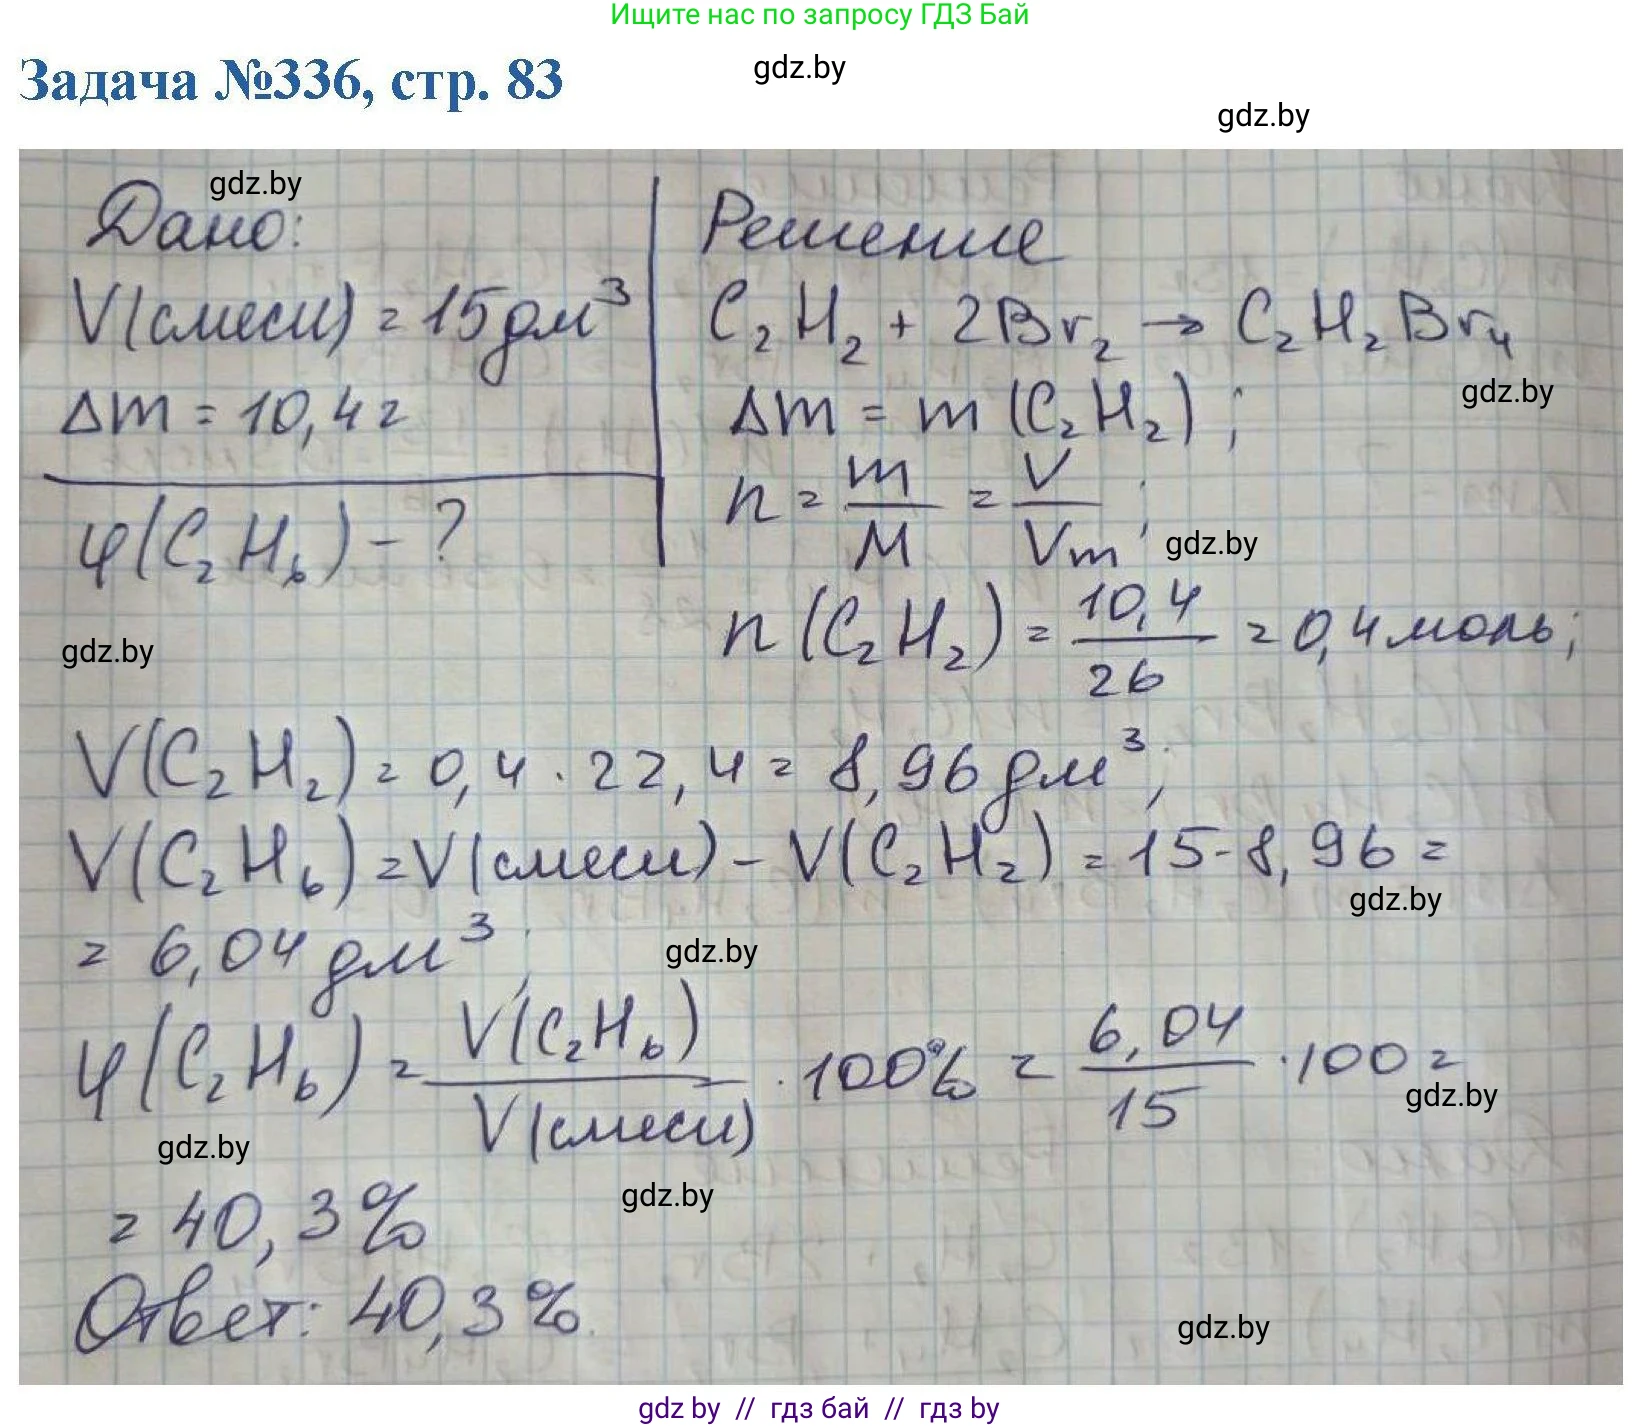 Ищите нас по запросу ГДЗ Бай
Задача №336, стр. 83
gdz.by
gdz.by
gdz.by
Дано:
V(смеси) = 15 дм³
Δm = 10,4 г
φ(C₂H₆) - ?
gdz.by
Решение
C₂H₂ + 2Br₂ → C₂H₂Br₄
gdz.by
Δm = m (C₂H₂) ;
n = m/M = V/Vm ;
gdz.by
n (C₂H₂) = 10,4/26 = 0,4 моль;
V(C₂H₂) = 0,4 · 22,4 = 8,96 дм³;
V(C₂H₆) = V(смеси) - V(C₂H₂) = 15 - 8,96 =
gdz.by
= 6,04 дм³;
gdz.by
φ(C₂H₆) = V(C₂H₆)/V(смеси) · 100% = 6,04/15 · 100 =
gdz.by
gdz.by
gdz.by
= 40,3 %
Ответ: 40,3 %.
gdz.by
gdz by // гдз бай // гдз by